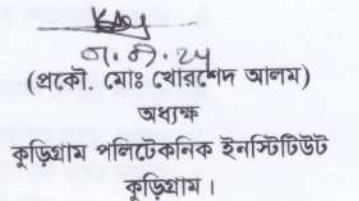 (প্রকৌ. মোঃ খোরশেদ আলম)
অধ্যক্ষ
কুড়িগ্রাম পলিটেকনিক ইনস্টিটিউট
কুড়িগ্রাম।